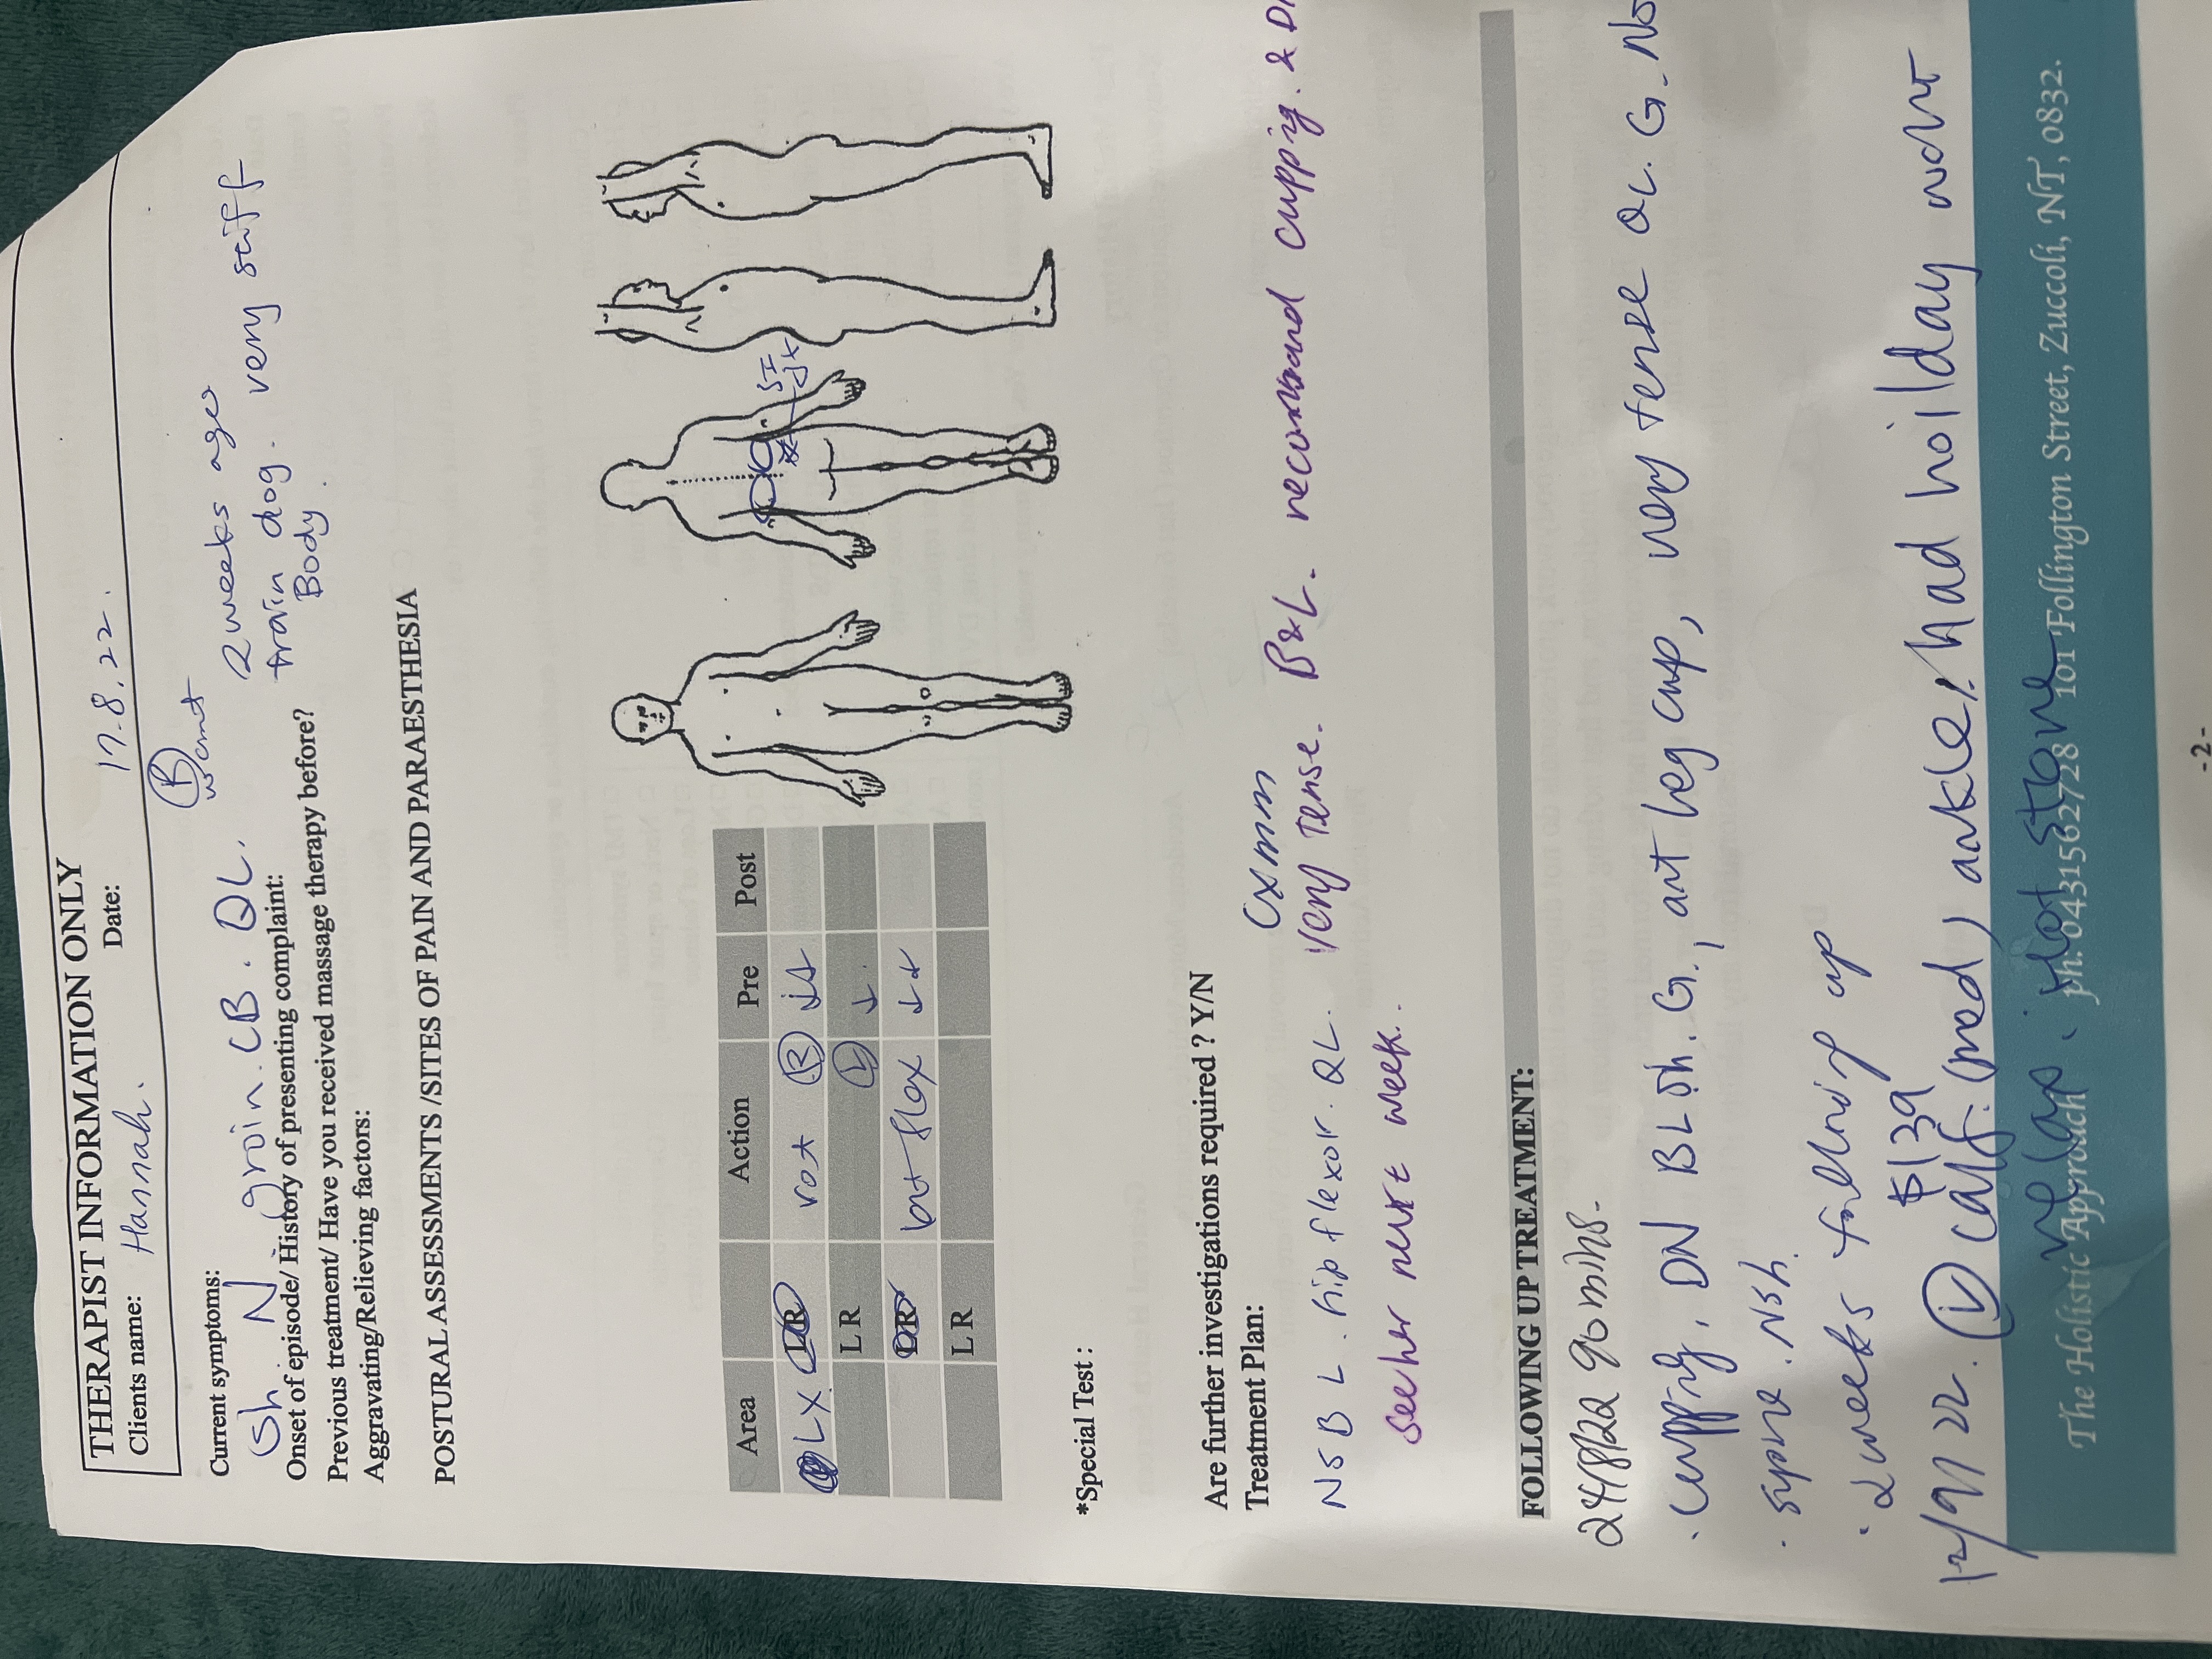 THERAPIST INFORMATION ONLY
Clients name: Hannah. Date: 17.8.22.
Current symptoms: B want
Sh N groin. LB. QL. 2 weeks ago
Onset of episode/ History of presenting complaint: train dog. very stiff
Previous treatment/ Have you received massage therapy before? Body.
Aggravating/Relieving factors:
POSTURAL ASSESSMENTS /SITES OF PAIN AND PARAESTHESIA
Area Action Pre Post
LX LR rot R ↓↓
L R L ↓.
LR lat flex ↓↓
L R
SI
Jx
*Special Test :
Are further investigations required ? Y/N
Treatment Plan:
NSBL. hip flexor. QL. very tense. B&L. recommand cupping. &
see her next week..
FOLLOWING UP TREATMENT:
24/8/22 90 mins.
· Cupping, DN BL Sh. G., ant leg cup, very tense QL. G. No
· spine. Nsh.
· 2 weeks following up
$139
14/9/22. L calf. (med, ankle). had hoilday want
relax. Hot stone
The Holistic Approach ph:0431562728 101 Follington Street, Zuccoli, NT, 0832.
-2-